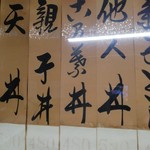 他人丼
乃葉丼
親子丼
天丼